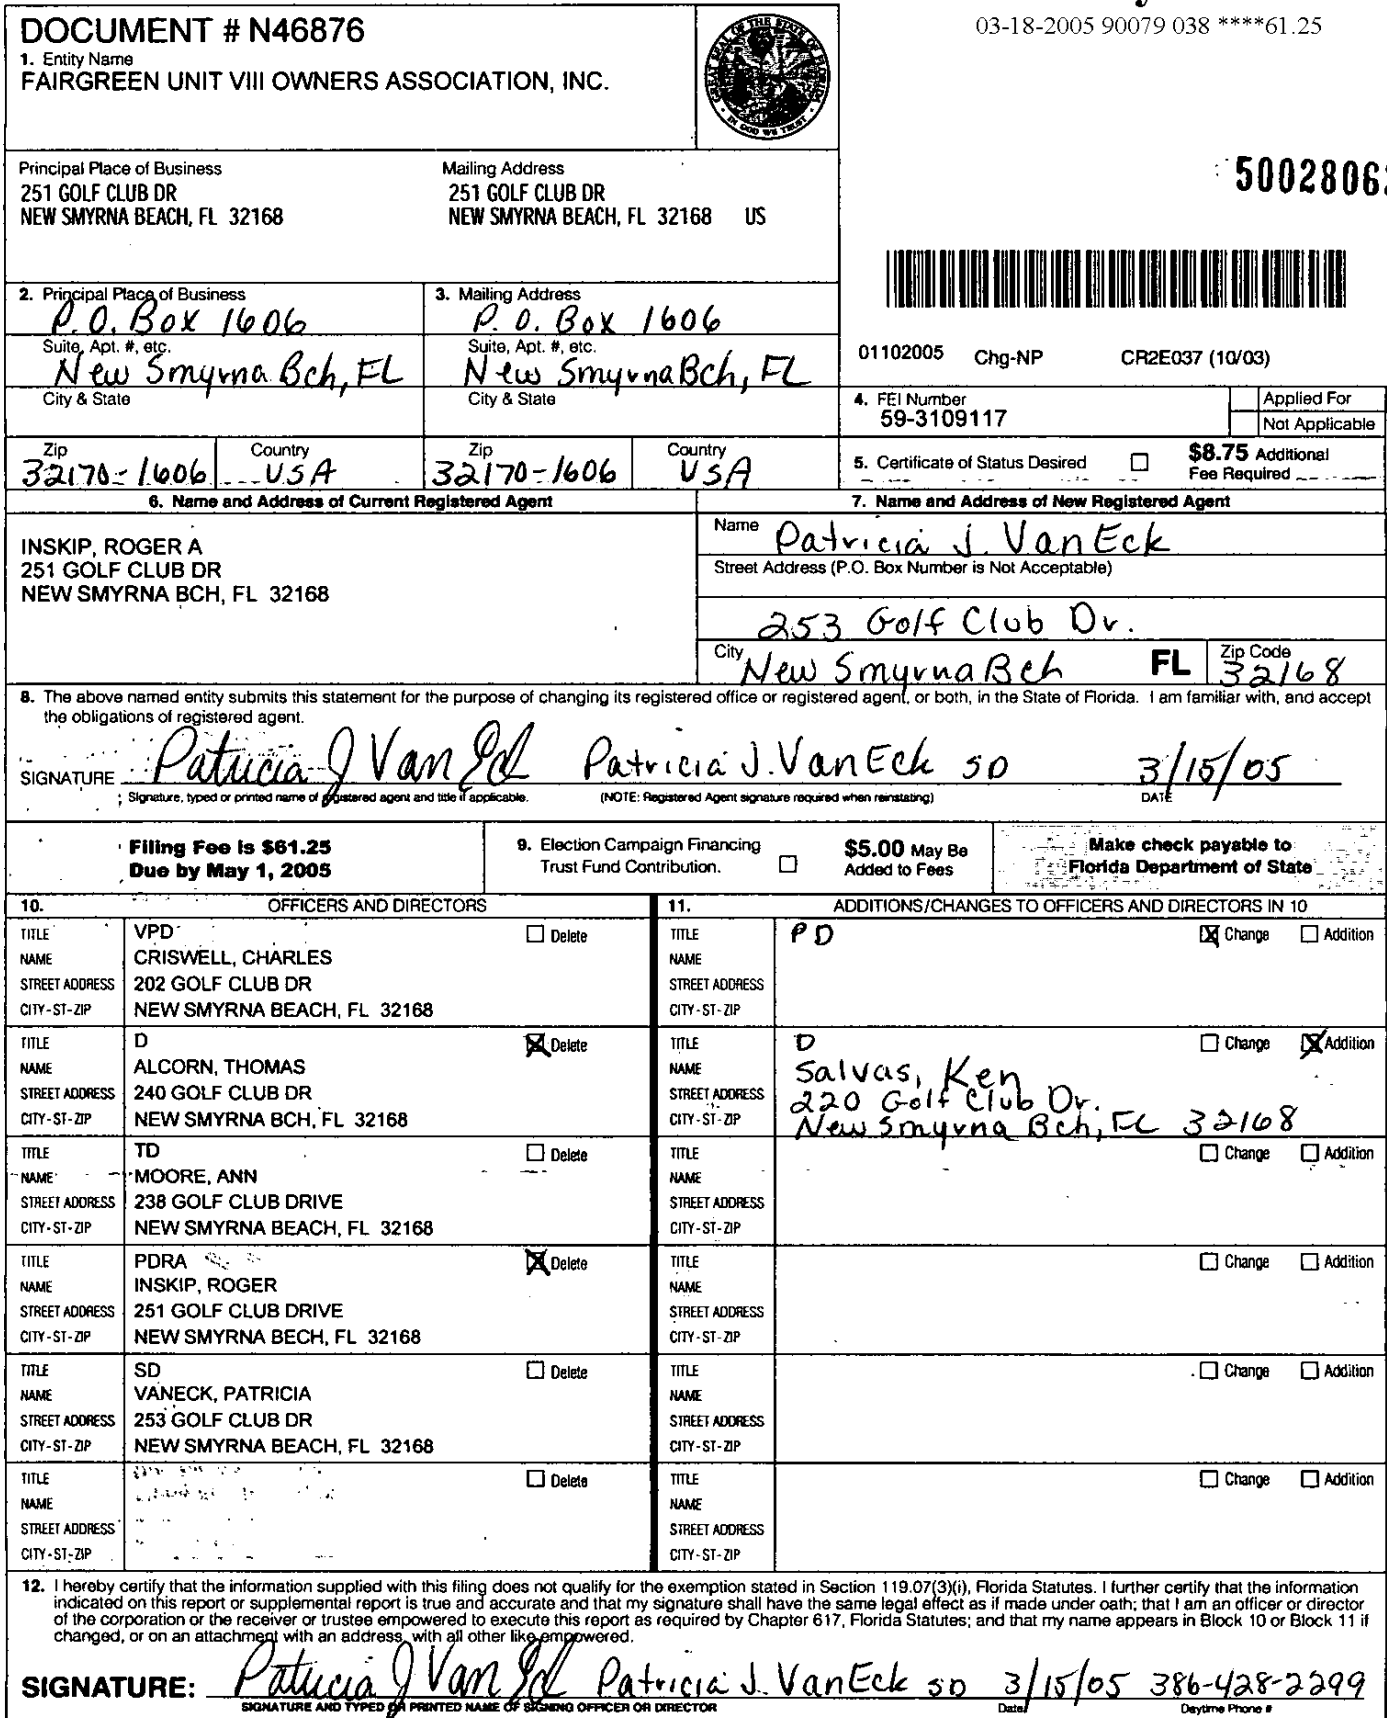 03-18-2005 90079 038 ****61.25
DOCUMENT # N46876
1. Entity Name
FAIRGREEN UNIT VIII OWNERS ASSOCIATION, INC.
GREAT SEAL OF THE STATE OF FLORIDA
IN GOD WE TRUST
Principal Place of Business
251 GOLF CLUB DR
NEW SMYRNA BEACH, FL 32168
Mailing Address
251 GOLF CLUB DR
NEW SMYRNA BEACH, FL 32168 US
5002806
2. Principal Place of Business
P.O. Box 1606
Suite, Apt. #, etc.
New Smyrna Bch, FL
City & State
Zip Country
32170-1606 USA
3. Mailing Address
P.O. Box 1606
Suite, Apt. #, etc.
New Smyrna Bch, FL
City & State
Zip Country
32170-1606 USA
01102005 Chg-NP CR2E037 (10/03)
4. FEI Number
59-3109117
Applied For
Not Applicable
5. Certificate of Status Desired
$8.75 Additional
Fee Required
6. Name and Address of Current Registered Agent
INSKIP, ROGER A
251 GOLF CLUB DR
NEW SMYRNA BCH, FL 32168
7. Name and Address of New Registered Agent
Name Patricia J. VanEck
Street Address (P.O. Box Number is Not Acceptable)
253 Golf Club Dr.
City New Smyrna Bch FL Zip Code 32168
8. The above named entity submits this statement for the purpose of changing its registered office or registered agent, or both, in the State of Florida. I am familiar with, and accept
the obligations of registered agent.
SIGNATURE Patricia J Van Eck Patricia J. VanEck SD 3/15/05
Signature, typed or printed name of registered agent and title if applicable. (NOTE: Registered Agent signature required when reinstating) DATE
Filing Fee is $61.25
Due by May 1, 2005
9. Election Campaign Financing
Trust Fund Contribution.
$5.00 May Be
Added to Fees
Make check payable to
Florida Department of State
10. OFFICERS AND DIRECTORS
TITLE VPD Delete
NAME CRISWELL, CHARLES
STREET ADDRESS 202 GOLF CLUB DR
CITY-ST-ZIP NEW SMYRNA BEACH, FL 32168
TITLE D X Delete
NAME ALCORN, THOMAS
STREET ADDRESS 240 GOLF CLUB DR
CITY-ST-ZIP NEW SMYRNA BCH, FL 32168
TITLE TD Delete
NAME MOORE, ANN
STREET ADDRESS 238 GOLF CLUB DRIVE
CITY-ST-ZIP NEW SMYRNA BEACH, FL 32168
TITLE PDRA X Delete
NAME INSKIP, ROGER
STREET ADDRESS 251 GOLF CLUB DRIVE
CITY-ST-ZIP NEW SMYRNA BECH, FL 32168
TITLE SD Delete
NAME VANECK, PATRICIA
STREET ADDRESS 253 GOLF CLUB DR
CITY-ST-ZIP NEW SMYRNA BEACH, FL 32168
TITLE Delete
NAME
STREET ADDRESS
CITY-ST-ZIP
11. ADDITIONS/CHANGES TO OFFICERS AND DIRECTORS IN 10
TITLE PD X Change Addition
NAME
STREET ADDRESS
CITY-ST-ZIP
TITLE D Change X Addition
NAME Salvas, Ken
STREET ADDRESS 220 Golf Club Dr.
CITY-ST-ZIP New Smyrna Bch, FL 32168
TITLE Change Addition
NAME
STREET ADDRESS
CITY-ST-ZIP
TITLE Change Addition
NAME
STREET ADDRESS
CITY-ST-ZIP
TITLE Change Addition
NAME
STREET ADDRESS
CITY-ST-ZIP
TITLE Change Addition
NAME
STREET ADDRESS
CITY-ST-ZIP
12. I hereby certify that the information supplied with this filing does not qualify for the exemption stated in Section 119.07(3)(i), Florida Statutes. I further certify that the information
indicated on this report or supplemental report is true and accurate and that my signature shall have the same legal effect as if made under oath; that I am an officer or director
of the corporation or the receiver or trustee empowered to execute this report as required by Chapter 617, Florida Statutes; and that my name appears in Block 10 or Block 11 if
changed, or on an attachment with an address, with all other like empowered.
SIGNATURE: Patricia J Van Eck Patricia J. VanEck SD 3/15/05 386-428-2299
SIGNATURE AND TYPED OR PRINTED NAME OF SIGNING OFFICER OR DIRECTOR Date Daytime Phone #